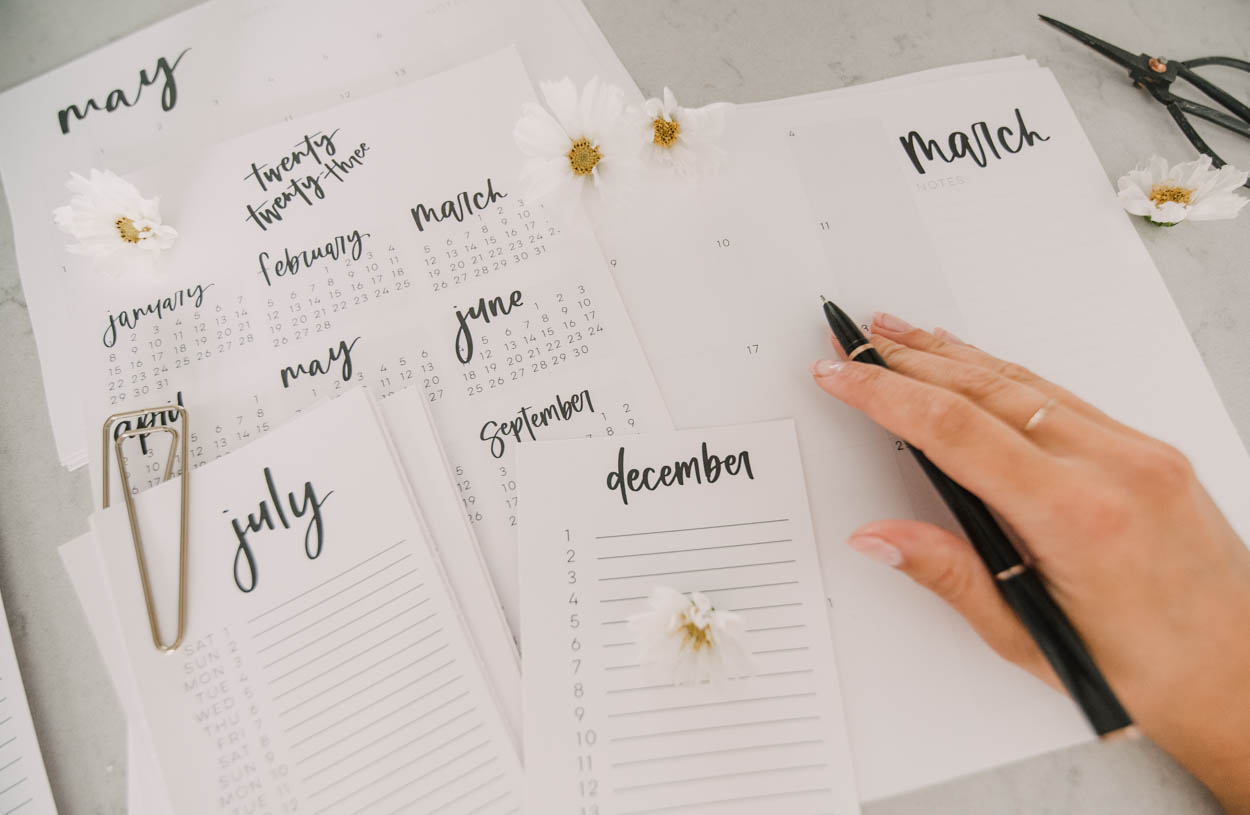 may
13
twenty
twenty-three
january
2 3 4 5 6 7
8 9 10 11 12 13 14
15 16 17 18 19 20 21
22 23 24 25 26 27 28
29 30 31
february
1 2 3 4
5 6 7 8 9 10 11
12 13 14 15 16 17 18
19 20 21 22 23 24 25
26 27 28
march
1 2 3
5 6 7 8 9 10
12 13 14 15 16 17
19 20 21 22 23 24
26 27 28 29 30 31
april
1
may
1 2 3 4 5 6
june
1 2 3
5 6 7 8 9 10
12 13 14 15 16 17
18 19 20 21 22 23 24
25 26 27 28 29 30
september
1 2
8 9
july
SAT 1
SUN 2
MON 3
TUE 4
WED 5
THU 6
FRI 7
SAT 8
SUN 9
MON 10
TUE 11
12
december
1
2
3
4
5
6
7
8
9
10
11
12
13
march
NOTES:
4
9
10
11
17